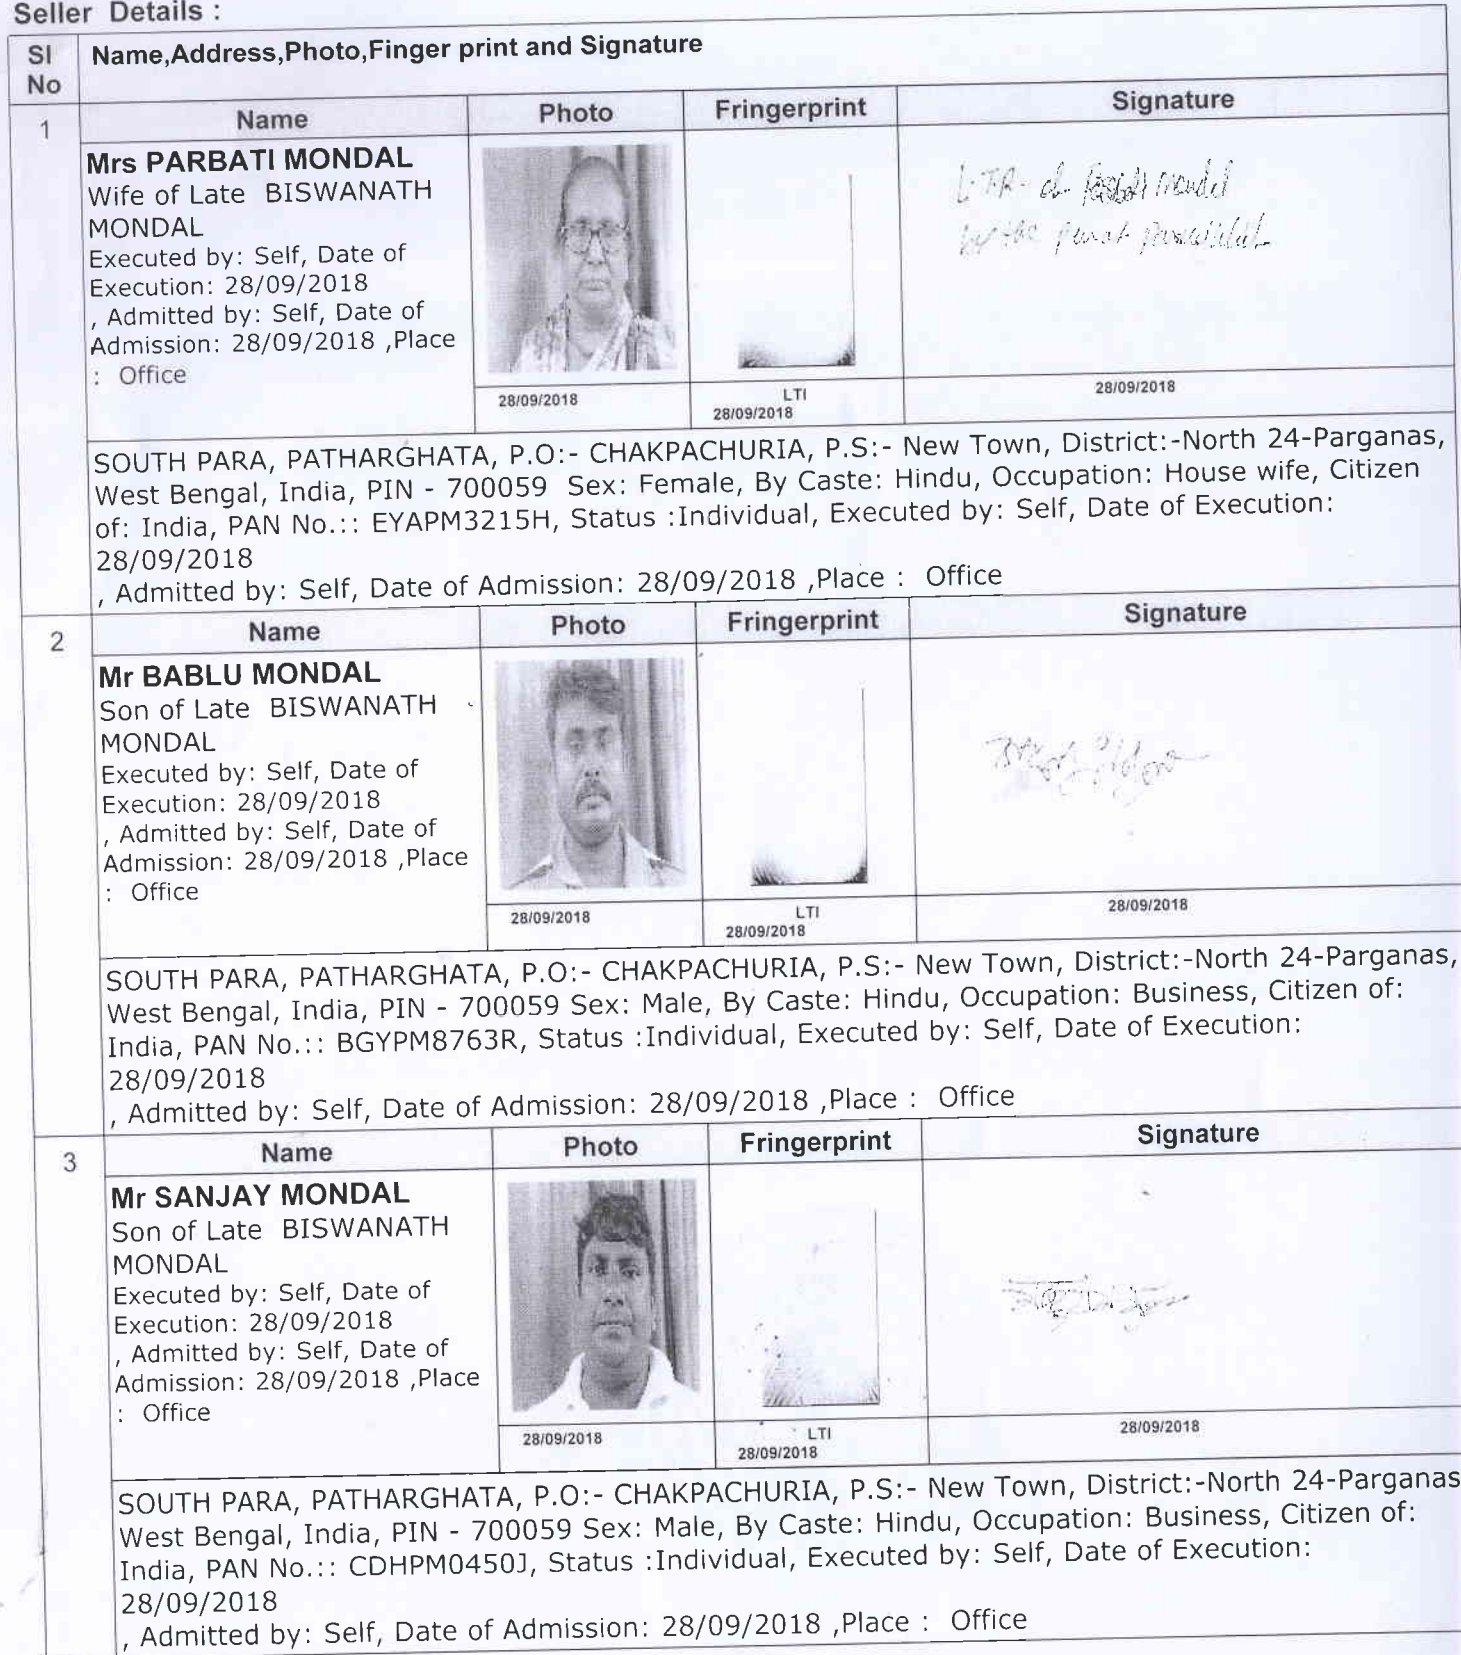 Seller Details :
Sl No
Name,Address,Photo,Finger print and Signature
1
Name Photo Fringerprint Signature
Mrs PARBATI MONDAL
Wife of Late BISWANATH
MONDAL
Executed by: Self, Date of
Execution: 28/09/2018
, Admitted by: Self, Date of
Admission: 28/09/2018 ,Place
: Office
28/09/2018
LTI
28/09/2018
28/09/2018
Mondal
by the
SOUTH PARA, PATHARGHATA, P.O:- CHAKPACHURIA, P.S:- New Town, District:-North 24-Parganas,
West Bengal, India, PIN - 700059 Sex: Female, By Caste: Hindu, Occupation: House wife, Citizen
of: India, PAN No.:: EYAPM3215H, Status :Individual, Executed by: Self, Date of Execution:
28/09/2018
, Admitted by: Self, Date of Admission: 28/09/2018 ,Place : Office
2
Name Photo Fringerprint Signature
Mr BABLU MONDAL
Son of Late BISWANATH
MONDAL
Executed by: Self, Date of
Execution: 28/09/2018
, Admitted by: Self, Date of
Admission: 28/09/2018 ,Place
: Office
28/09/2018
LTI
28/09/2018
28/09/2018
SOUTH PARA, PATHARGHATA, P.O:- CHAKPACHURIA, P.S:- New Town, District:-North 24-Parganas,
West Bengal, India, PIN - 700059 Sex: Male, By Caste: Hindu, Occupation: Business, Citizen of:
India, PAN No.:: BGYPM8763R, Status :Individual, Executed by: Self, Date of Execution:
28/09/2018
, Admitted by: Self, Date of Admission: 28/09/2018 ,Place : Office
3
Name Photo Fringerprint Signature
Mr SANJAY MONDAL
Son of Late BISWANATH
MONDAL
Executed by: Self, Date of
Execution: 28/09/2018
, Admitted by: Self, Date of
Admission: 28/09/2018 ,Place
: Office
28/09/2018
LTI
28/09/2018
28/09/2018
SOUTH PARA, PATHARGHATA, P.O:- CHAKPACHURIA, P.S:- New Town, District:-North 24-Parganas
West Bengal, India, PIN - 700059 Sex: Male, By Caste: Hindu, Occupation: Business, Citizen of:
India, PAN No.:: CDHPM0450J, Status :Individual, Executed by: Self, Date of Execution:
28/09/2018
, Admitted by: Self, Date of Admission: 28/09/2018 ,Place : Office